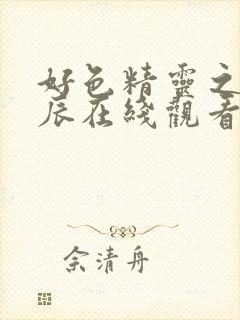 好色精靈之
辰在綫觀看
佘清舟